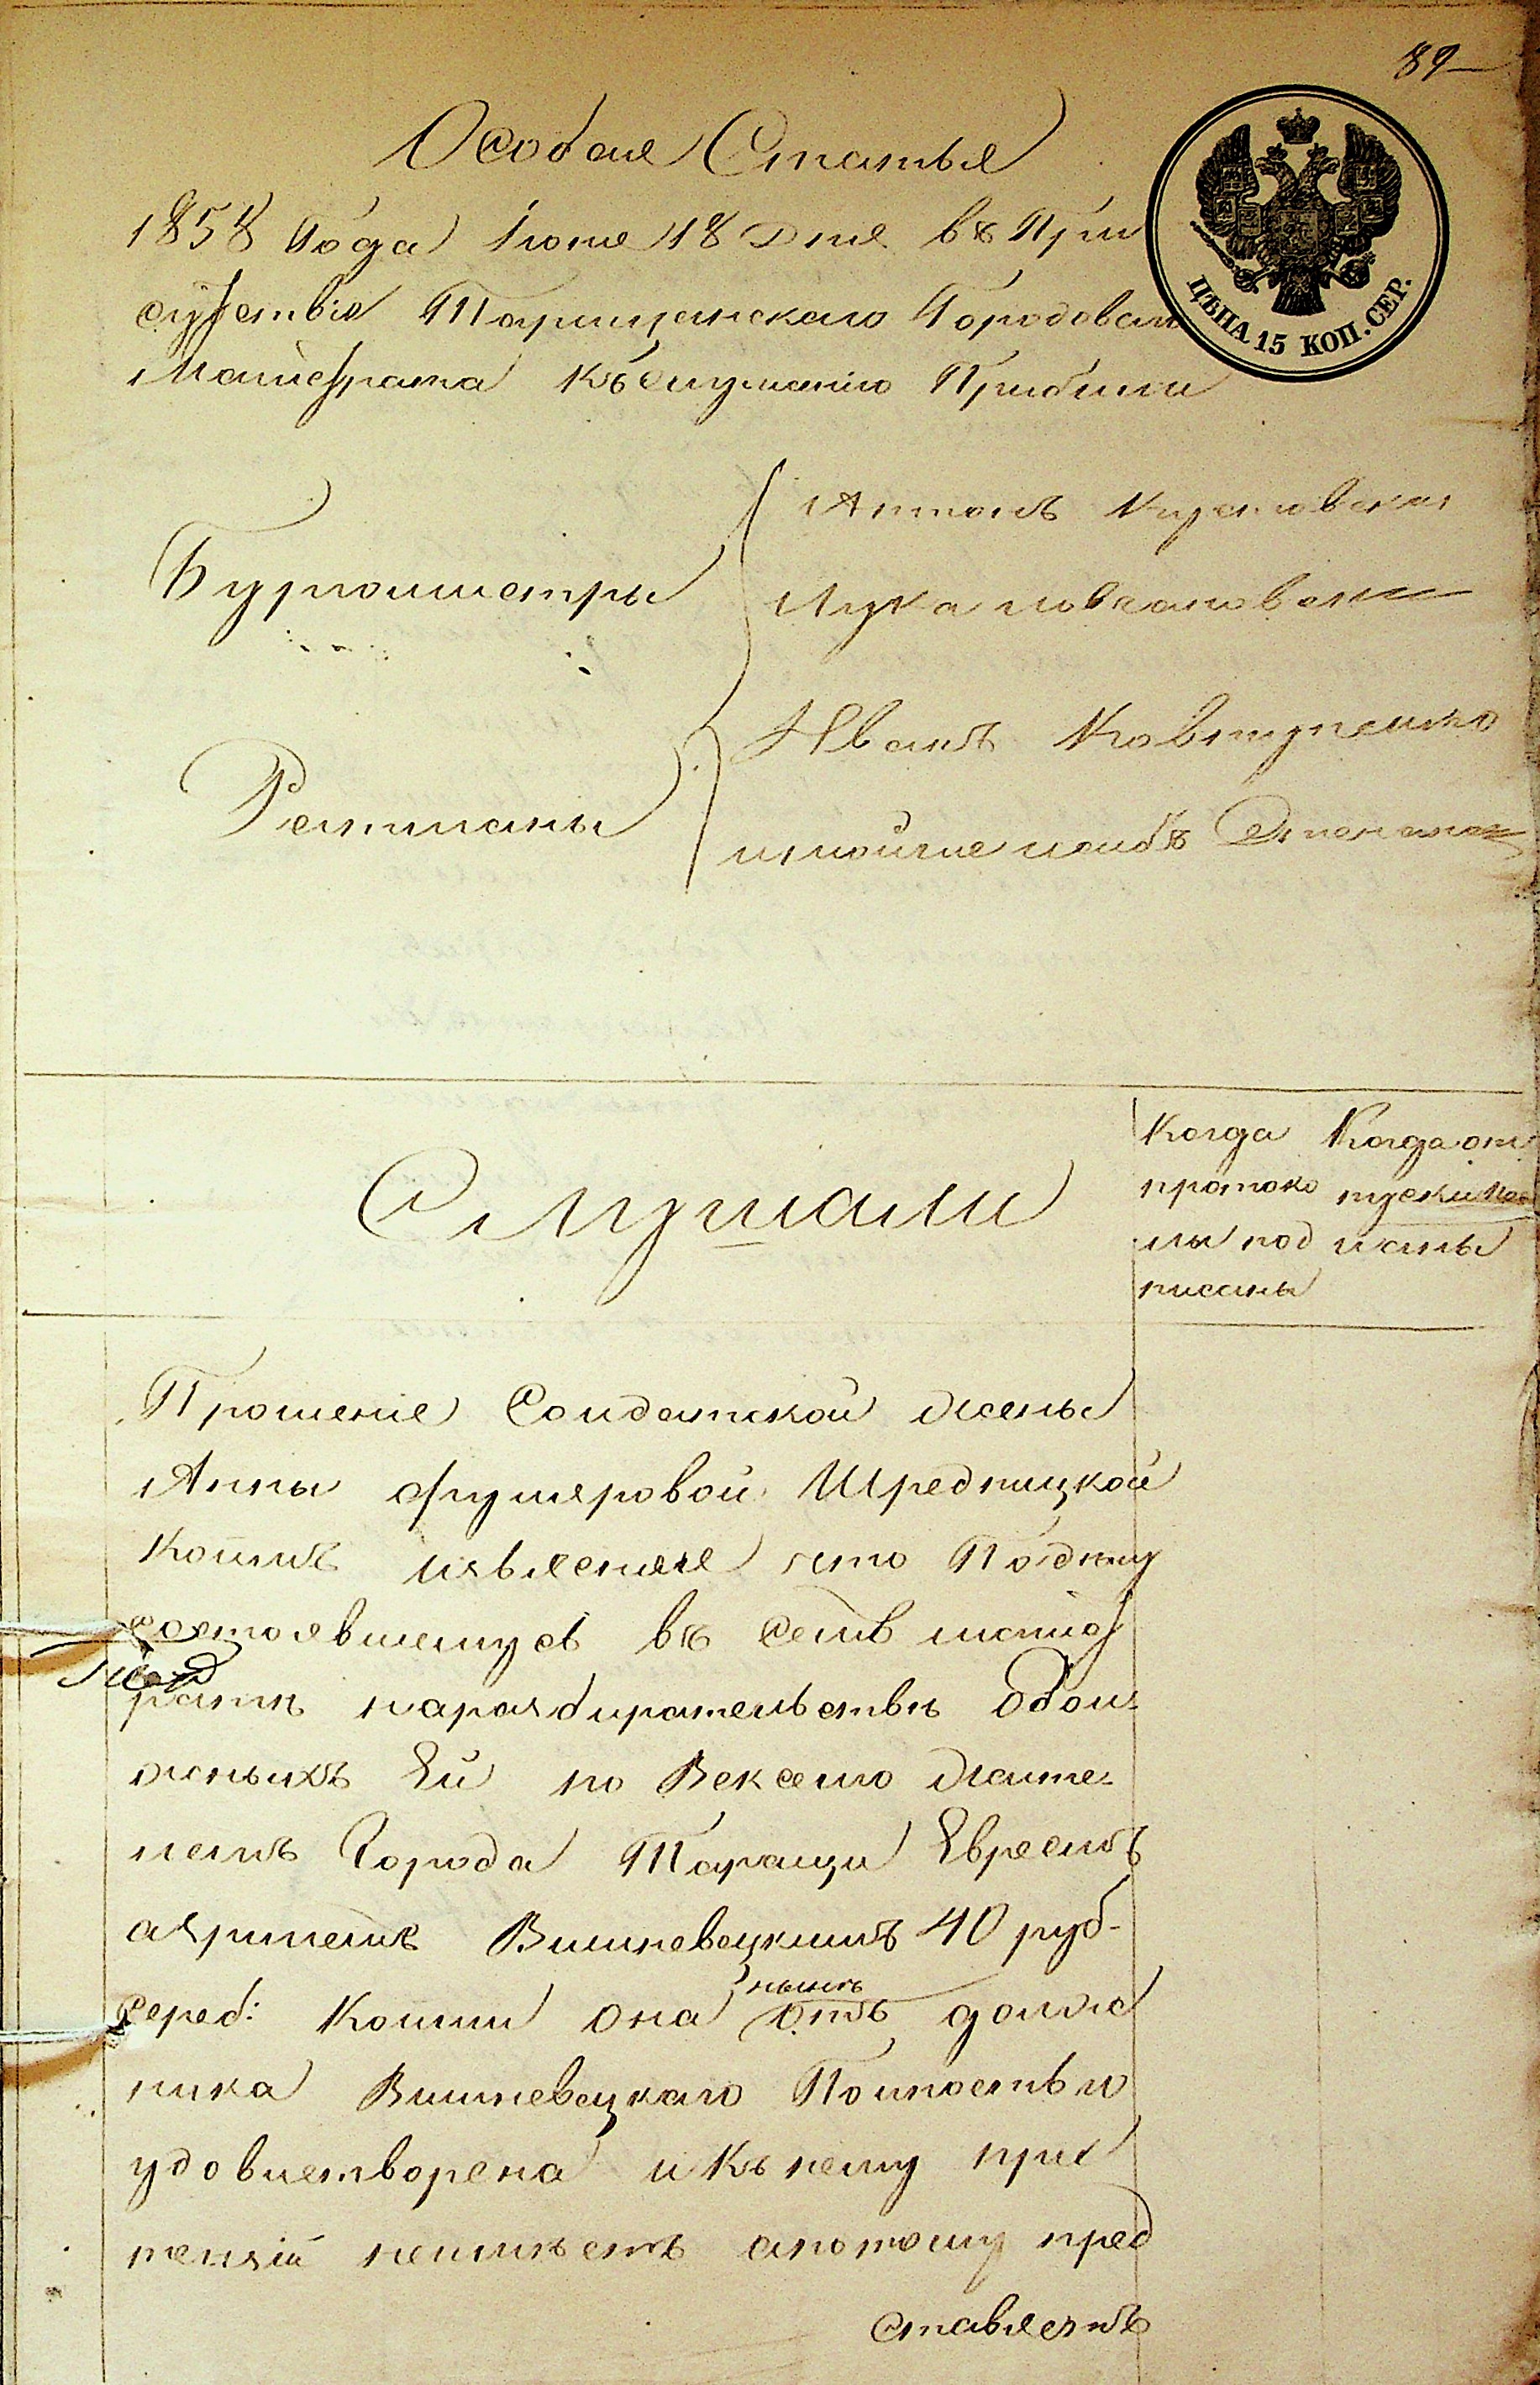 89
Особая Статья
1858 Года Іюня 18 Дня въ При
сутствіе Таращанскаго Городоваго
Магистрата Къ слушанію Прибыли
ЦѢНА 15 КОП. СЕР.
Бургомистры
Антонъ
Лука
Ратманы
Иванъ Ковтуненко
Слушали
Когда
протоко
лы под
писаны
Когда от
пуски
Прошеніе Солдатской жены
Анны Шредницкой
коимъ изъясняя что По дѣлу
состоявшемуся въ семъ магист
ратѣ о
жныхъ Ей по Векселю жите
лемъ Города Таращи Евреемъ
Вишневецкимъ 40 руб
сереб: коими она нынѣ отъ долж
ника Вишневецкаго Полностью
удовлетворена и Къ нему пре
тензіи неимѣетъ а потому пред
ставляетъ